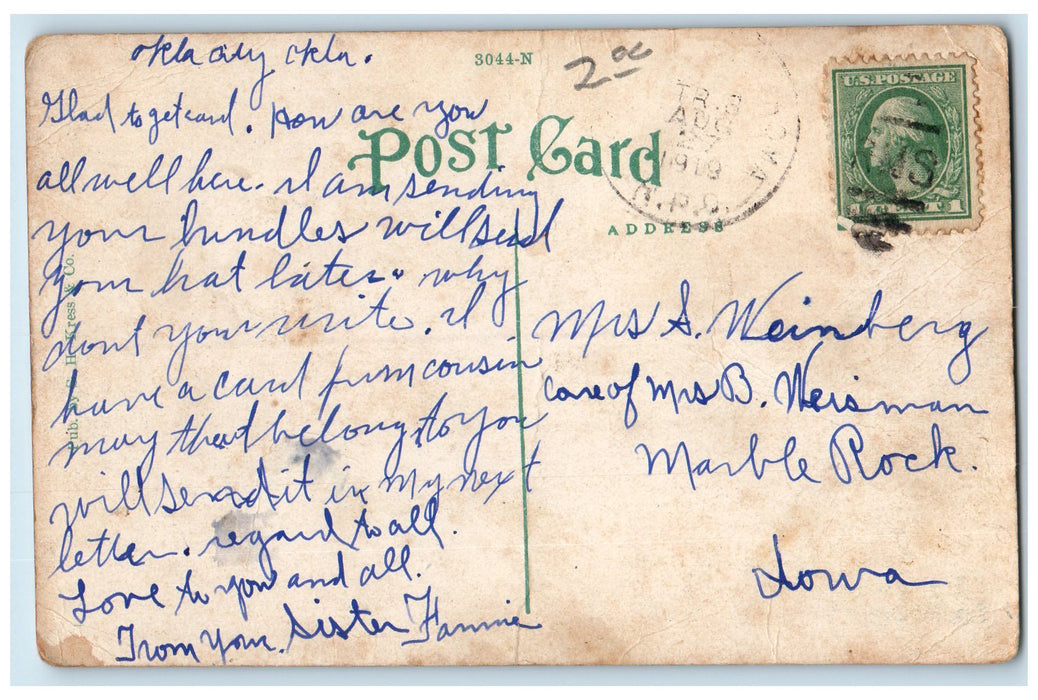 Okla city Okla.
3044-N
2 00
Glad to get card. How are you
POST CARD
all well here. I am sending
your bundles will send
your hat later. why
dont you write. I
have a card from cousin
may that belongs to you
will send it in my next
letter. regard to all.
Love to you and all.
From your Sister Fannie
Pub. by S. H. Kress & Co.
TR. 8
AUG
27
1919
R.P.O.
U.S. POSTAGE
1
ADDRESS
Mrs S. Weinberg
care of Mrs B. Weisman
Marble Rock.
Iowa